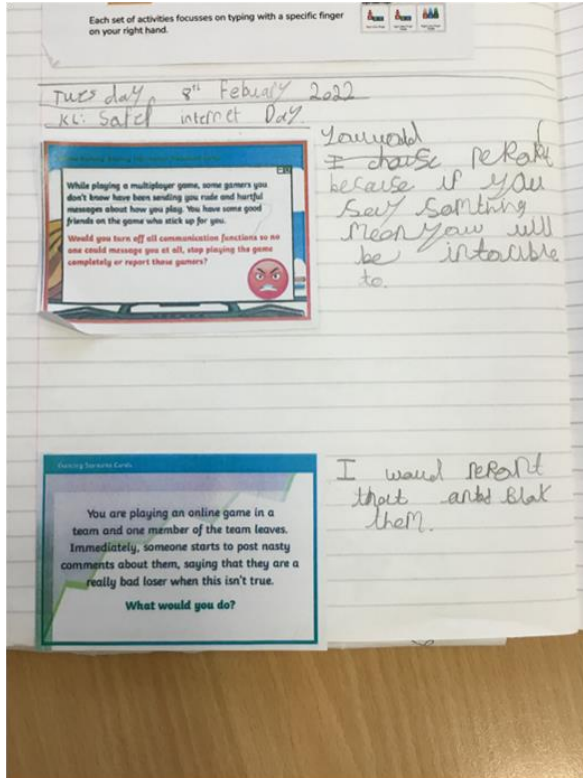 Each set of activities focusses on typing with a specific finger
on your right hand.
Tuesday 8th Febuary 2022
KL: Safer internet Day.
While playing a multiplayer game, some gamers you
don't know have been sending you rude and hurtful
messages about how you play. You have some good
friends on the game who stick up for you.
Would you turn off all communication functions so no
one could message you at all, stop playing the game
completely or report these gamers?
You would
I choose report
because if you
say somthing
mean you will
be
to.
You are playing an online game in a
team and one member of the team leaves.
Immediately, someone starts to post nasty
comments about them, saying that they are a
really bad loser when this isn't true.
What would you do?
I waud report
that and Blak
them.